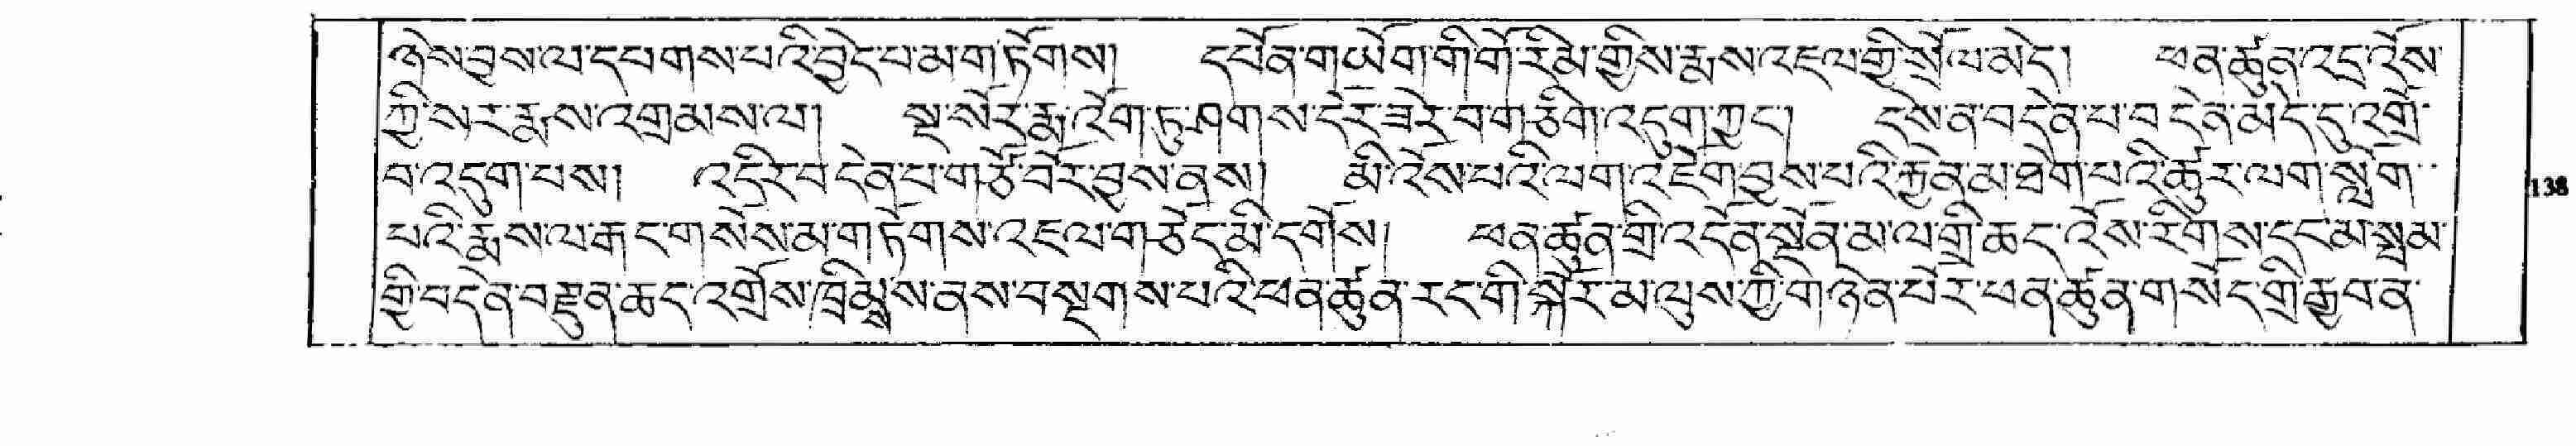 ཉེས་བྱས་ལ་དཔགས་པའི་བྱེད་པ་མ་གཏོགས། དཔོན་གཡོག་གི་གོ་རིམ་གྱིས་རྨས་འཇལ་གྱི་སྲོལ་མེད། ཕན་ཚུན་འདྲ་འོས་
ཀྱི་སར་རྨས་འགྲམས་ལ། སྔ་སོར་རྨ་འོག་ཏུ་ཤགས་དེར་ཟེར་བ་གཅིག་འདུག་ཀྱང། དེས་ན་བདེན་པ་བདེན་མེད་དུ་འགྲོ་
བ་འདུག་པས། འདིར་བདེན་པ་གཙོ་བོར་བྱས་ནས། མི་འོས་པའི་ལག་འཛེག་བྱས་པའི་རྐྱེན་མ་ཐེག་པའི་ཚུར་ལག་སློག་
པའི་རྨས་ལ་རྒང་གསེས་མ་གཏོགས་འཇལ་གཅེད་མི་དགོས། ཕན་ཚུན་གྲི་འདོན་སྔོན་མ་ལ་གྲི་ཆད་འོས་རིགས་དང་མ་སྨྲམ་
གྱི་བདེན་བརྫུན་ཆད་འགྲོས་ཁྲིམྶྲས་ནས་བསྔགས་པའི་ཕན་ཚུན་རང་གི་སྐོར་མ་ལུས་ཀྱི་གཉེན་པོར་ཕན་ཚུན་གསོད་གྲི་རྒྱབ་ན་
138